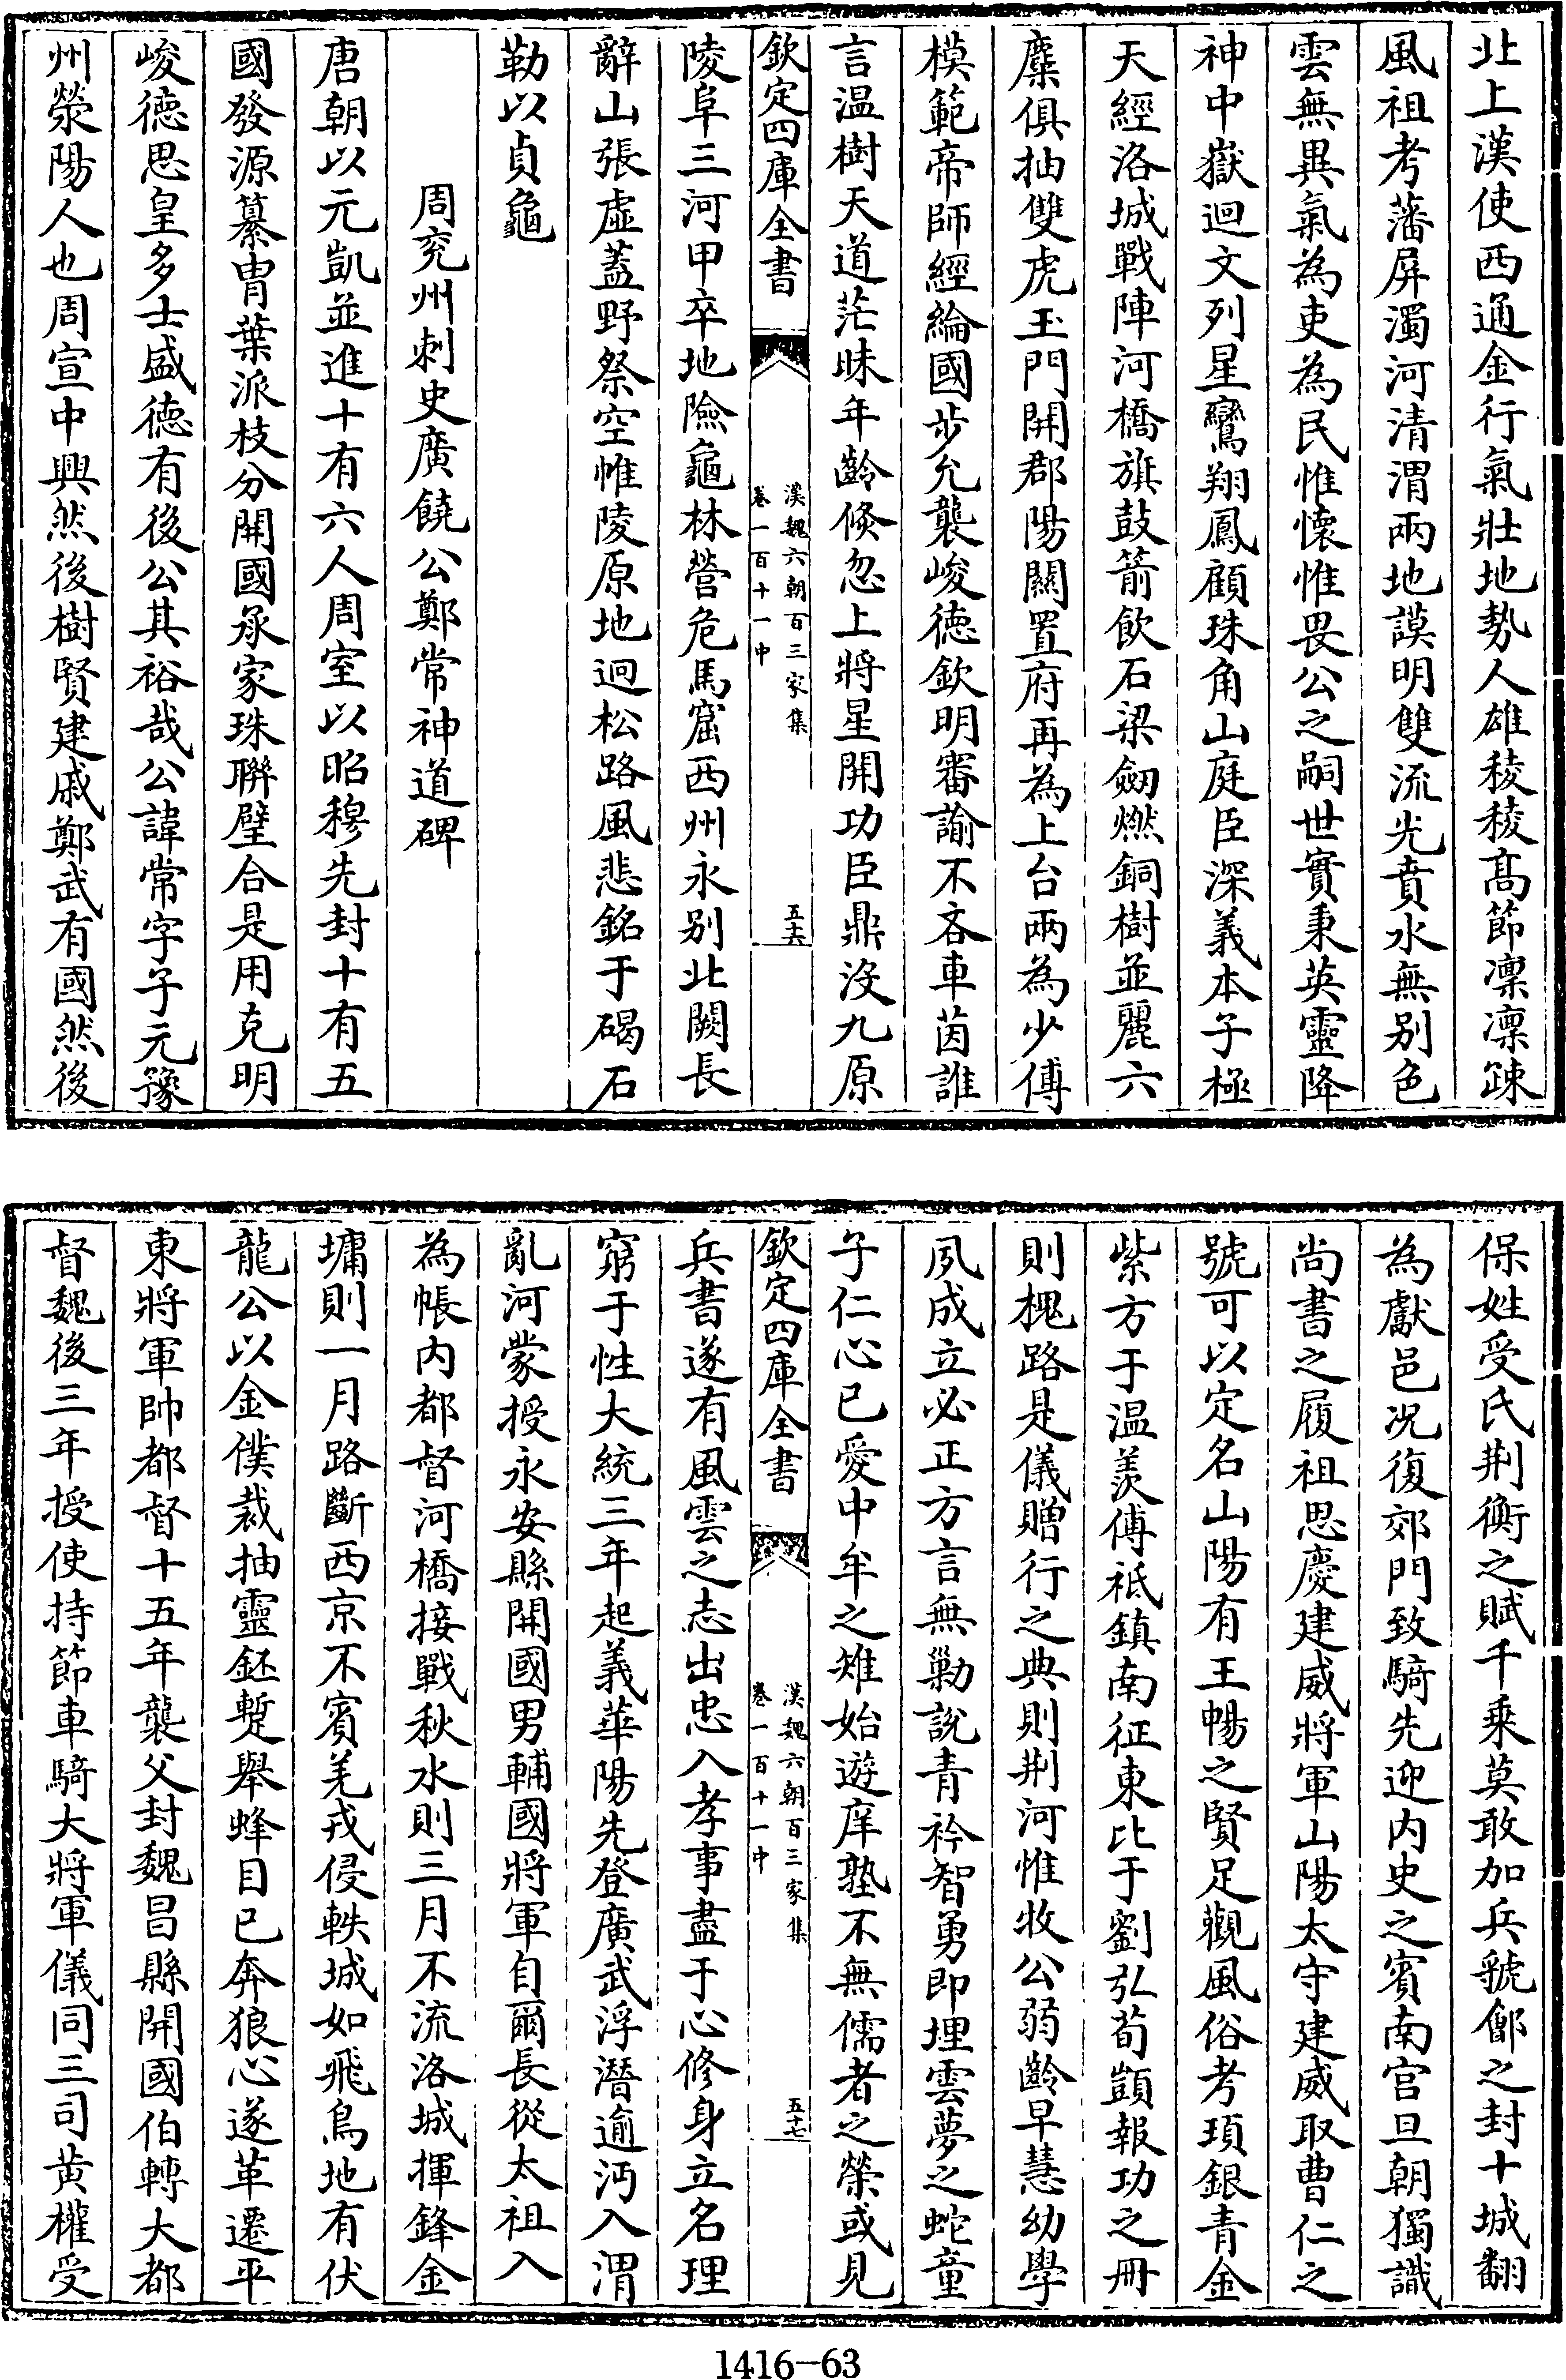 北上漢使西通金行氣壯地勢人雄稜稜髙節凛凛疎
風祖考藩屏濁河清渭兩地謨明雙流光賁水無别色
雲無異氣為吏為民惟懷惟畏公之嗣世實秉英靈降
神中嶽迴文列星鸞翔鳳顧珠角山庭臣深義本子極
天經洛城戰陣河橋旗鼓箭飲石梁劒燃銅樹並麗六
麋俱抽雙虎玉門開郡陽關置府再為上台兩為少傅
模範帝師經綸國步允襲峻徳欽明審諭不吝車茵誰
言温樹天道茫昧年齡倐忽上將星開功臣鼎沒九原
欽定四庫全書
漢魏六朝百三家集
卷一百十一中
五十六
陵阜三河甲卒地險龜林營危馬窟西州永别北闕長
辭山張虛蓋野祭空帷陵原地迥松路風悲銘于碣石
勒以貞龜
周兖州刺史廣饒公鄭常神道碑
唐朝以元凱並進十有六人周室以昭穆先封十有五
國發源纂胄葉派枝分開國承家珠聯璧合是用克明
峻徳思皇多士盛徳有後公其裕哉公諱常字子元豫
州滎陽人也周宣中興然後樹賢建戚鄭武有國然後
保姓受氏荆衡之賦千乘莫敢加兵虢鄶之封十城翻
為獻邑况復郊門致騎先迎内史之賓南宫旦朝獨識
尚書之履祖思慶建威將軍山陽太守建威取曹仁之
號可以定名山陽有王暢之賢足觀風俗考頊銀青金
紫方于温羨傅祗鎮南征東比于劉弘荀顗報功之冊
則槐路是儀贈行之典則荆河惟牧公弱齡早慧幼學
夙成立必正方言無勦說青衿智勇即埋雲夢之蛇童
子仁心已愛中牟之雉始遊庠塾不無儒者之榮或見
欽定四庫全書
漢魏六朝百三家集
卷一百十一中
五十七
兵書遂有風雲之志出忠入孝事盡于心修身立名理
窮于性大統三年起義華陽先登廣武浮潛逾沔入渭
亂河蒙授永安縣開國男輔國將軍自爾長從太祖入
為帳内都督河橋接戰秋水則三月不流洛城揮鋒金
墉則一月路斷西京不賓羌戎侵軼城如飛鳥地有伏
龍公以金僕裁抽靈鉟蹔舉蜂目已奔狼心遂革遷平
東將軍帥都督十五年襲父封魏昌縣開國伯轉大都
督魏後三年授使持節車騎大將軍儀同三司黄權受
1416—63